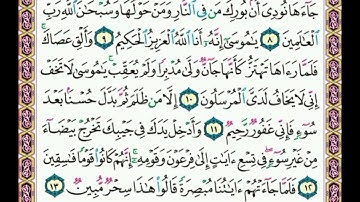 جَآءَهَا نُودِىَ أَنۢ بُورِكَ مَن فِى ٱلنَّارِ وَمَنْ حَوْلَهَا وَسُبْحَٰنَ ٱللَّهِ رَبِّ
ٱلْعَٰلَمِينَ ٨ يَٰمُوسَىٰٓ إِنَّهُۥٓ أَنَا ٱللَّهُ ٱلْعَزِيزُ ٱلْحَكِيمُ ٩ وَأَلْقِ عَصَاكَ ۚ
فَلَمَّا رَءَاهَا تَهْتَزُّ كَأَنَّهَا جَآنٌّ وَلَّىٰ مُدْبِرًا وَلَمْ يُعَقِّبْ ۚ يَٰمُوسَىٰ لَا تَخَفْ
إِنِّى لَا يَخَافُ لَدَىَّ ٱلْمُرْسَلُونَ ١٠ إِلَّا مَن ظَلَمَ ثُمَّ بَدَّلَ حُسْنًۢا بَعْدَ
سُوٓءٍ فَإِنِّى غَفُورٌ رَّحِيمٌ ١١ وَأَدْخِلْ يَدَكَ فِى جَيْبِكَ تَخْرُجْ بَيْضَآءَ
مِنْ غَيْرِ سُوٓءٍ ۖ فِى تِسْعِ ءَايَٰتٍ إِلَىٰ فِرْعَوْنَ وَقَوْمِهِۦٓ ۚ إِنَّهُمْ كَانُوا۟ قَوْمًا فَٰسِقِينَ
١٢ فَلَمَّا جَآءَتْهُمْ ءَايَٰتُنَا مُبْصِرَةً قَالُوا۟ هَٰذَا سِحْرٌ مُّبِينٌ ١٣